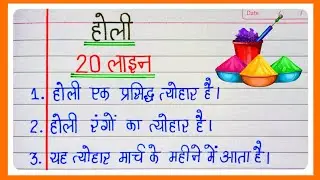 Date
होली
20 लाइन
1. होली एक प्रसिद्ध त्योहार है।
2. होली रंगों का त्योहार है।
3. यह त्योहार मार्च के महीने में आता है।